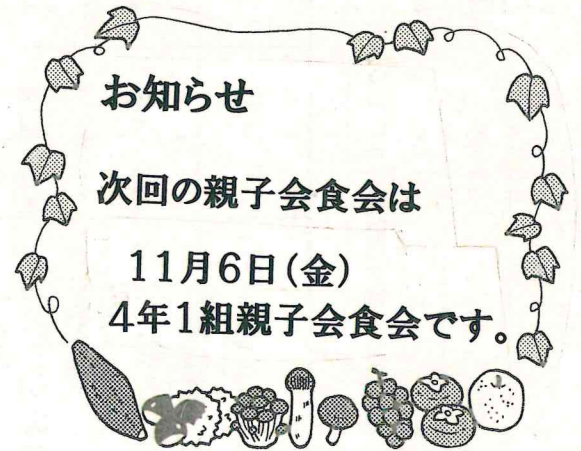 お知らせ
次回の親子会食会は
11月6日(金)
4年1組親子会食会です。